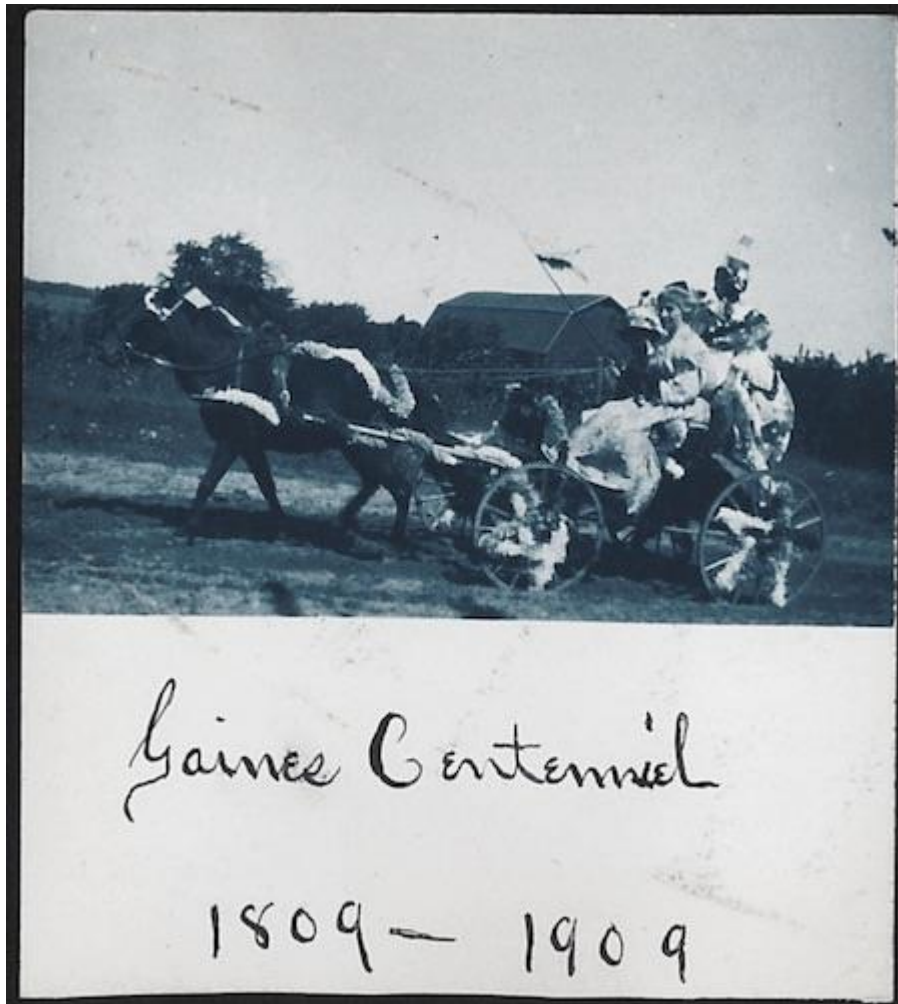 Gaines Centenniel
1809 - 1909